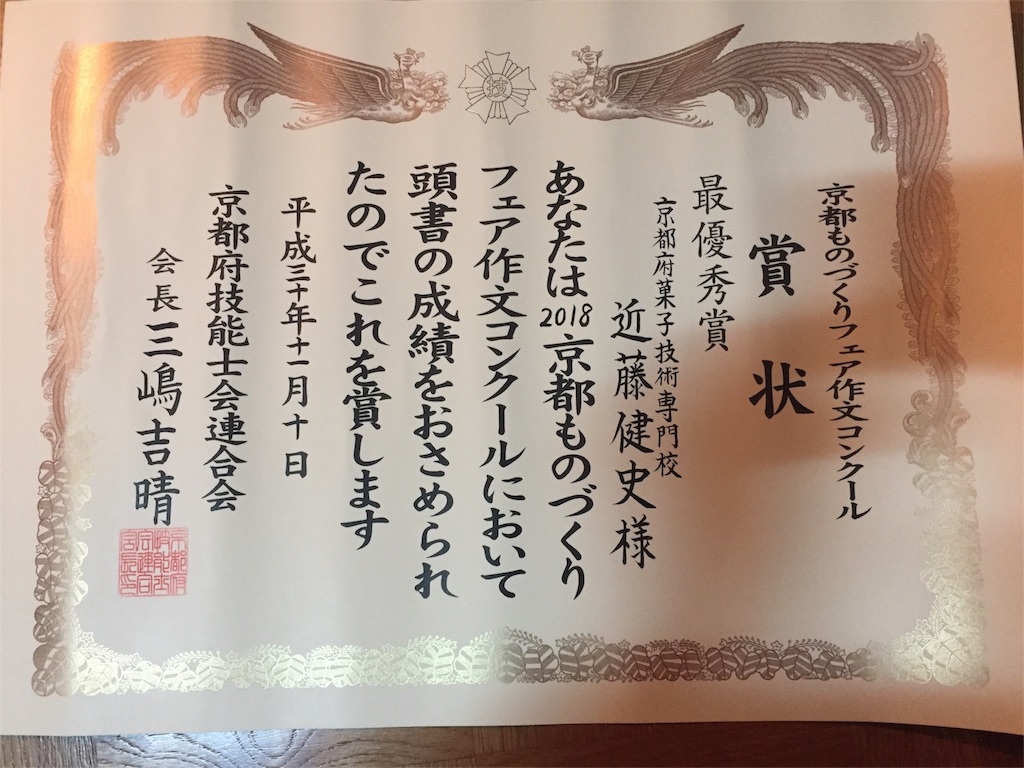 技
京都ものづくりフェア作文コンクール
賞状
最優秀賞
京都府菓子技術専門校
近藤健史様
あなたは2018京都ものづくり
フェア作文コンクールにおいて
頭書の成績をおさめられ
たのでこれを賞します
平成三十年十一月十日
京都府技能士会連合会
会長 三嶋吉晴